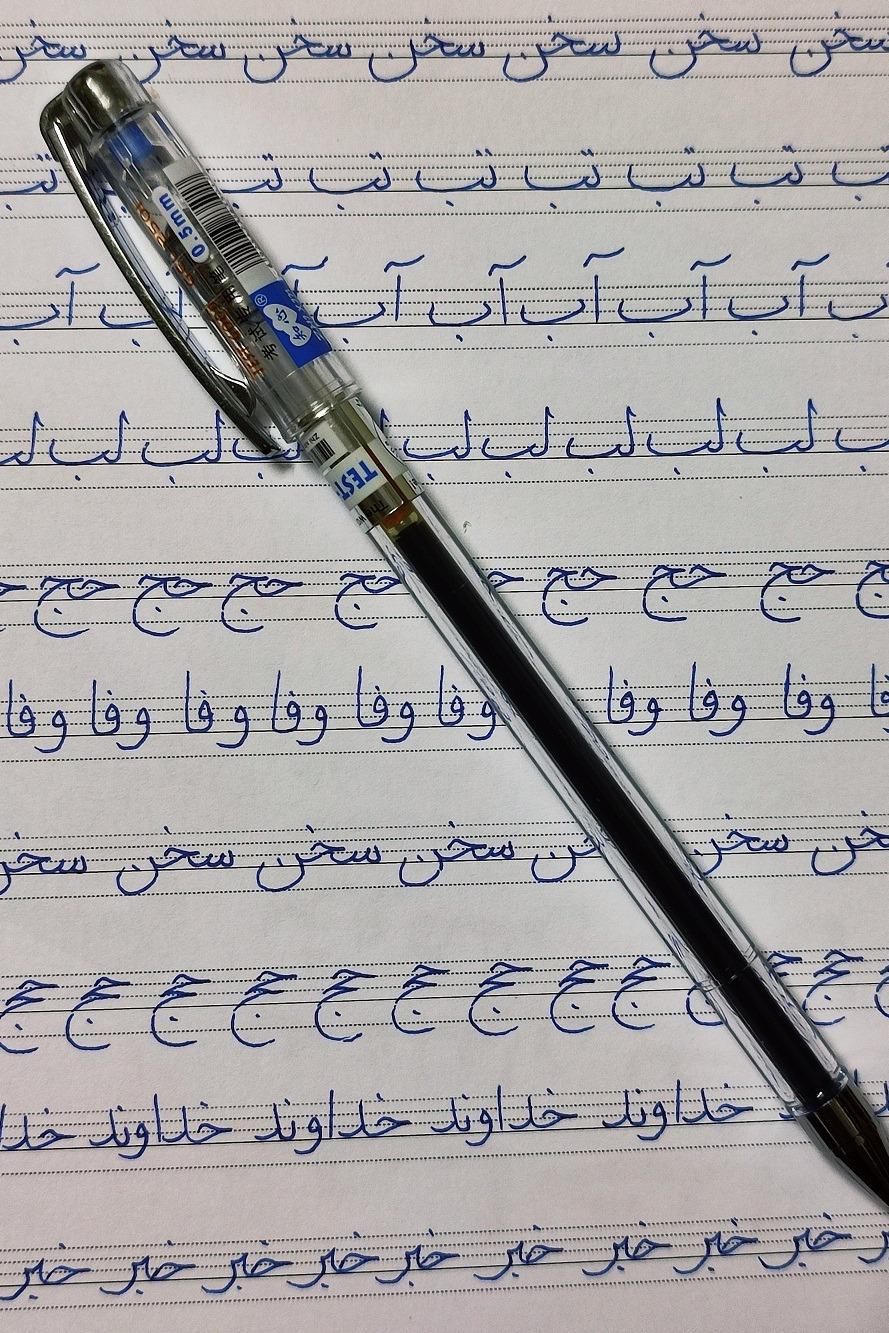 سخن سخن سخن سخن سخن سخن سخن
تب تب تب تب تب تب تب تب
آب آب آب آب آب آب
لب لب لب لب لب لب لب لب لب
حج حج حج حج حج حج حج
وفا وفا وفا وفا وفا وفا وفا وفا وفا
سخن سخن سخن سخن سخن
حج حج حج حج حج حج حج حج حج حج
خداوند خداوند خداوند خداوند خدا
خبر خبر خبر خبر خبر خبر خبر خبر خبر
0.5mm
TEST